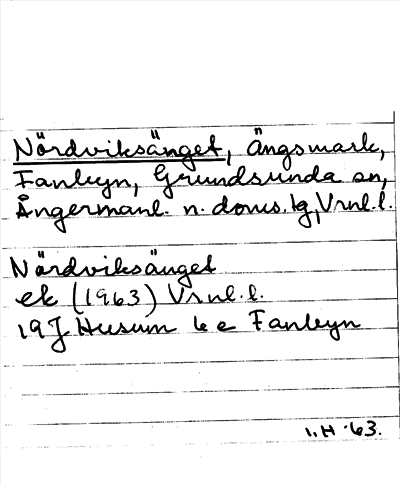 Nördviksänget, Ängsmark,
Fanbyn, Grundsunda sn,
Ångermanl. n. doms. lg, Vrnl. l.
Nördviksänget
ek (1963) Vrnl. l.
19J Husum 6 e Fanbyn
I. H '63.